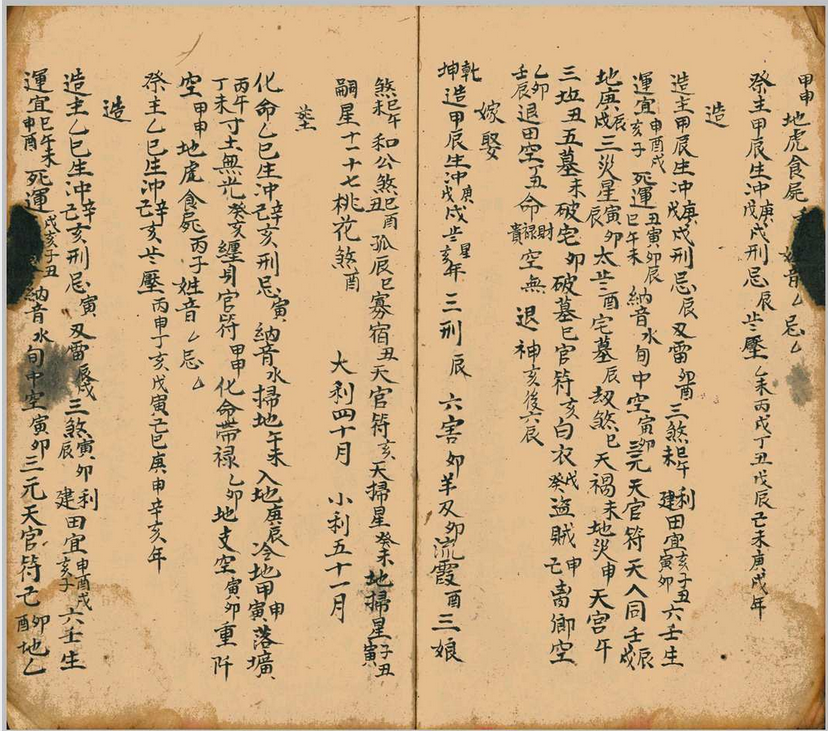 甲申 地虎食屍 姓音乙忌乙
祭主甲辰生沖庚戌戊戌刑忌辰 岁壓乙未丙戌丁丑戊辰己未庚戌年
造
造主甲辰生沖庚戌戊戌刑忌辰 反雷卯酉 三煞巳午未 利亥子丑 建田宜寅卯 六壬生
運宜申酉戌亥子 死運丑寅卯辰巳午未 納音水旬中空寅卯 三元天官符天入同壬辰戌
地庚辰戌三災星寅卯辰太岁酉宅墓辰劫煞巳天禍未地災申天宫午
三坵丑五墓未破宅卯破墓巳官符亥白衣癸戌盗賊申己离鄉空
乙卯壬辰退田空丁丑命 財祿貴空無 退神亥後六辰
嫁娶
乾坤造甲辰生沖庚戌戊戌岁星亥年 三刑辰 六害卯羊刃卯流霞酉三娘
煞巳午未和公煞巳酉丑孤辰巳寡宿丑天官符亥天掃星癸未地掃星子丑寅
嗣星十二十七桃花煞酉 大利四十月 小利五十一月
塟
化命乙巳生沖辛亥己亥刑忌寅 納音水掃地午未入地庚辰冷地甲申寅落壙
丙午丁未寸土無光癸亥纏身官符甲申化命帶禄乙卯地支空寅卯重阡
空甲申地虎食屍丙子姓音乙忌乙
祭主乙巳生沖辛亥己亥岁壓丙申丁亥戊寅己巳庚申辛亥年
造
造主乙巳生沖辛亥己亥刑忌寅 反雷辰戌 三煞寅卯辰 利 建田宜申酉戌亥子六壬生
運宜巳午未申酉 死運戌亥子丑 納音水旬中空寅卯三元天官符己卯酉地乙